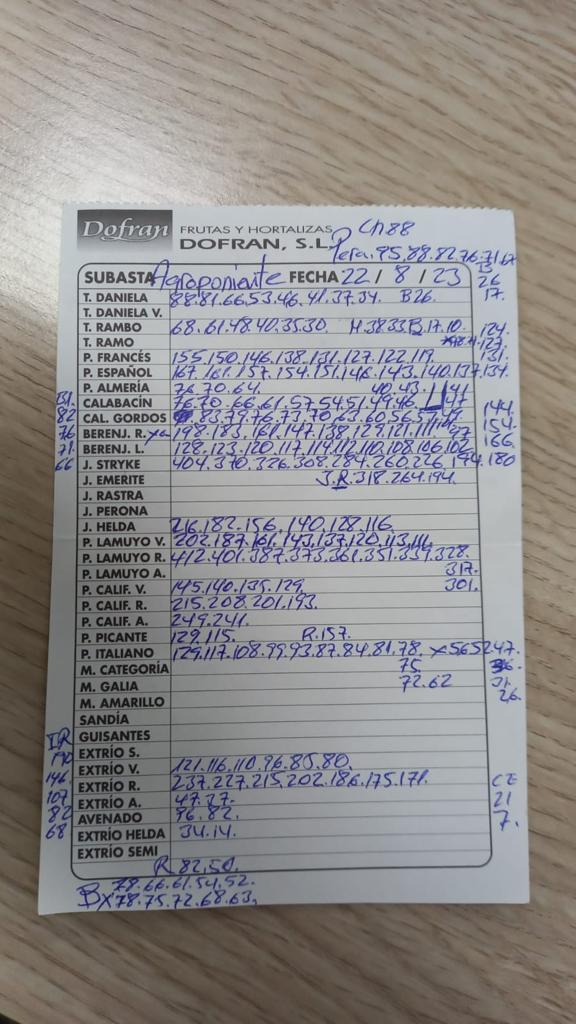 Dofran FRUTAS Y HORTALIZAS
DOFRAN, S.L.
Ch 88
Pera. 95.88.82.76.71.67
SUBASTA Agroponiente FECHA 22 / 8 / 23
26
T. DANIELA 88.81.66.53.46.41.37.34. B26. 17.
T. DANIELA V.
T. RAMBO 68.61.48.40.35.30. H.38.33 B.17.10. 124.
T. RAMO 123.
P. FRANCÉS 155.150.146.138.131.127.122.119. 131.
P. ESPAÑOL 167.161.157.154.151.146.143.140.137.134.
P. ALMERÍA 76.70.64. 40.43. 41
131. CALABACÍN 76.70.66.61.57.54.51.49.46. 47
82 CAL. GORDOS 83.79.76.73.70.63.60.56.54.49. 144.
154.
76 BERENJ. R. 198.183.161.147.138.129.121.111. 166.
71. BERENJ. L. 128.123.120.117.114.116.110.108.106.102.
66 J. STRYKE 404.370.326.308.284.260.226.194.180
J. EMERITE J.R. 318.264.194.
J. RASTRA
J. PERONA
J. HELDA 216.182.156.140.128.116.
P. LAMUYO V. 202.187.161.143.137.120.113.111.
P. LAMUYO R. 412.401.387.373.361.351.339.328.
P. LAMUYO A. 317.
P. CALIF. V. 145.140.135.129. 301.
P. CALIF. R. 215.208.201.193.
P. CALIF. A. 249.241.
P. PICANTE 129.115. R.157.
P. ITALIANO 129.117.108.99.93.87.84.81.78. x565247.
M. CATEGORÍA 75. 36.
M. GALIA 72.62 31.
M. AMARILLO 26.
SANDÍA
GUISANTES
EXTRÍO S.
EXTRÍO V. 121.116.110.96.85.80.
146 EXTRÍO R. 237.227.215.202.186.175.171. CE
107 EXTRÍO A. 47.37. 21
82 AVENADO 96.82. 7.
68 EXTRÍO HELDA 34.14.
EXTRÍO SEMI
R 82.50.
B 78.66.61.54.52.
x78.75.72.68.63.